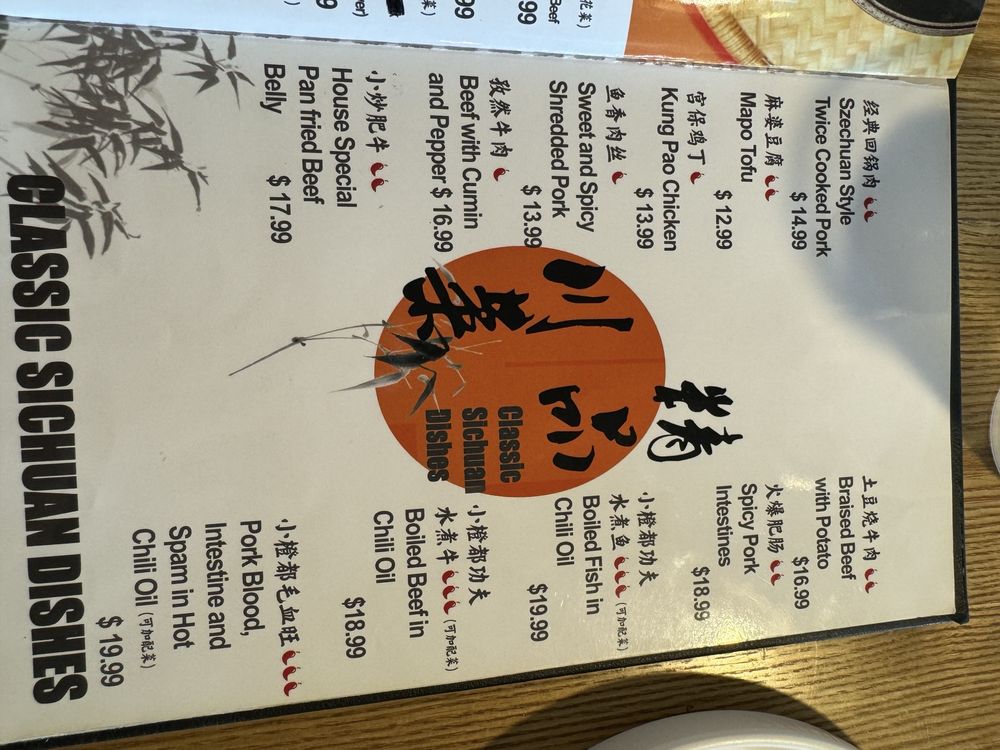 经典回锅肉
Szechuan Style
Twice Cooked Pork
$ 14.99
麻婆豆腐
Mapo Tofu
$ 12.99
宫保鸡丁
Kung Pao Chicken
$ 13.99
鱼香肉丝
Sweet and Spicy
Shredded Pork
$ 13.99
孜然牛肉
Beef with Cumin
and Pepper $ 16.99
小炒肥牛
House Special
Pan fried Beef
Belly
$ 17.99
精品
川菜
Classic
Sichuan
Dishes
土豆烧牛肉
Braised Beef
with Potato
$16.99
火爆肥肠
Spicy Pork
Intestines
$18.99
小橙都功夫
水煮鱼 (可加配菜)
Boiled Fish in
Chili Oil
$19.99
小橙都功夫
水煮牛 (可加配菜)
Boiled Beef in
Chili Oil
$18.99
小橙都毛血旺
Pork Blood,
Intestine and
Spam in Hot
Chili Oil (可加配菜)
$ 19.99
CLASSIC SICHUAN DISHES
花菜)
Beef
99
99